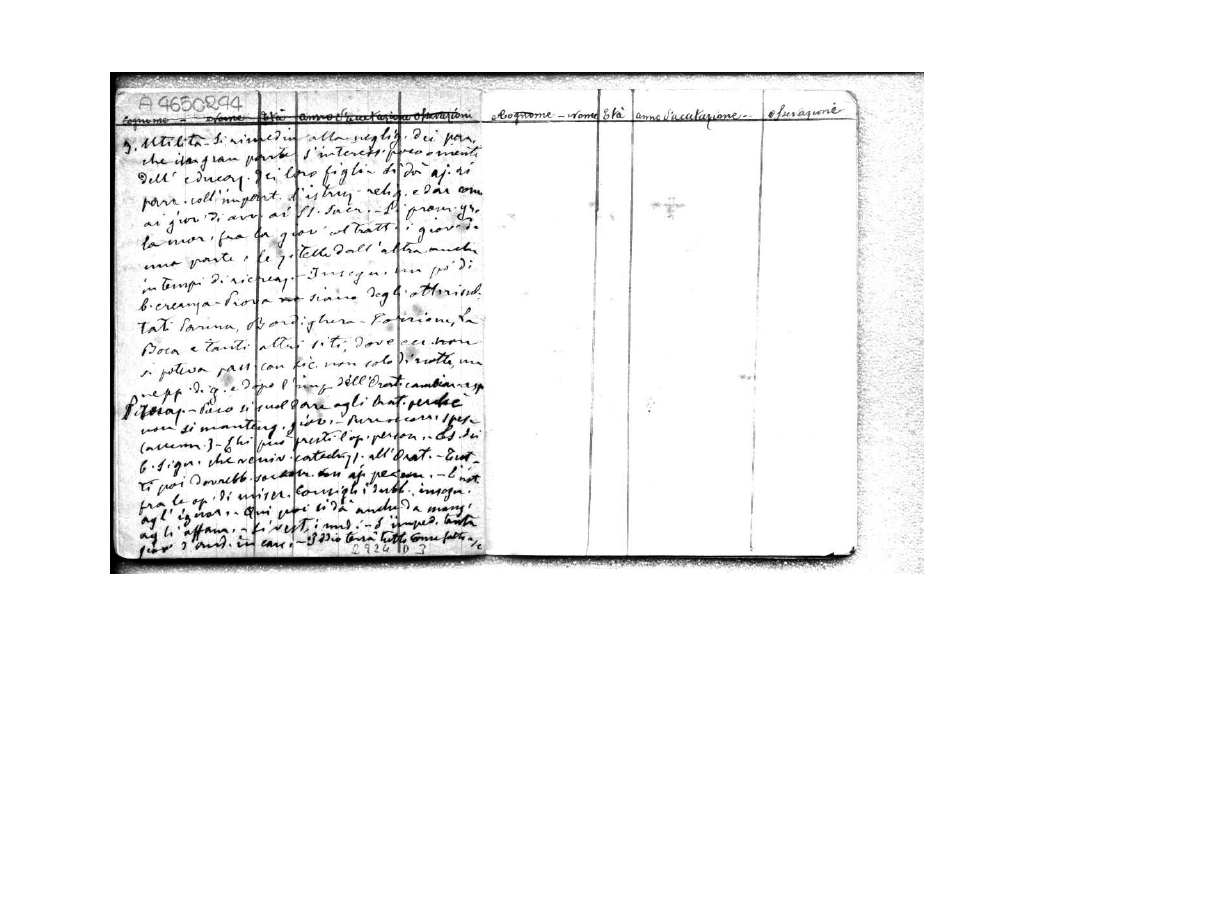 A 4650294
Cognome - Nome Età anno d'accettazione osservazioni
3. Utilità - Si rimedia alla neglig. dei paren.
che in gran parte s'interess. poco o niente
dell' educaz. dei loro figli - Si dà aj. ai
parr. coll'impart. l'istruz. relig. e dar com
ai giov. di avv. ai SS. Sacr. - Si preser.
la mor. fra la giov. coltratt. i giov. da
una parte e le zitelle dall'altra anche
in tempi di ricreaz. - Insegn. un pò di
b. creanza - Prova ne siano degli ottimi risul.
tati Parma, Bordighera - Torrione, La
Boca e tanti altri siti, dove non
si poteva pass. con sic. non solo di notte, ma
nepp. di g. e dopo l'imp. dell'Orat. cambiar. asp
Peroraz. - Ma si suol dare agli Orat. perchè
non si manteng. giov. - Pure occorr. spese
(accenn.) - Chi può presti l'op. person. - Es. dei
b. sign. che veniv. catechizz. all'Orat. - Tut-
ti poi dovrebb. - È not.
fra le op. di miser. Consigli i dubb. insegn.
agl'ignor. - Qui poi si dà anche da mang.
agli affam. - Si vest. i nud. - S'imped. tanta
giov. d'and. in carc. - Iddio terrà tutto come fatto a
2924 D 3
Cognome - Nome Età anno d'accettazione - osservazioni